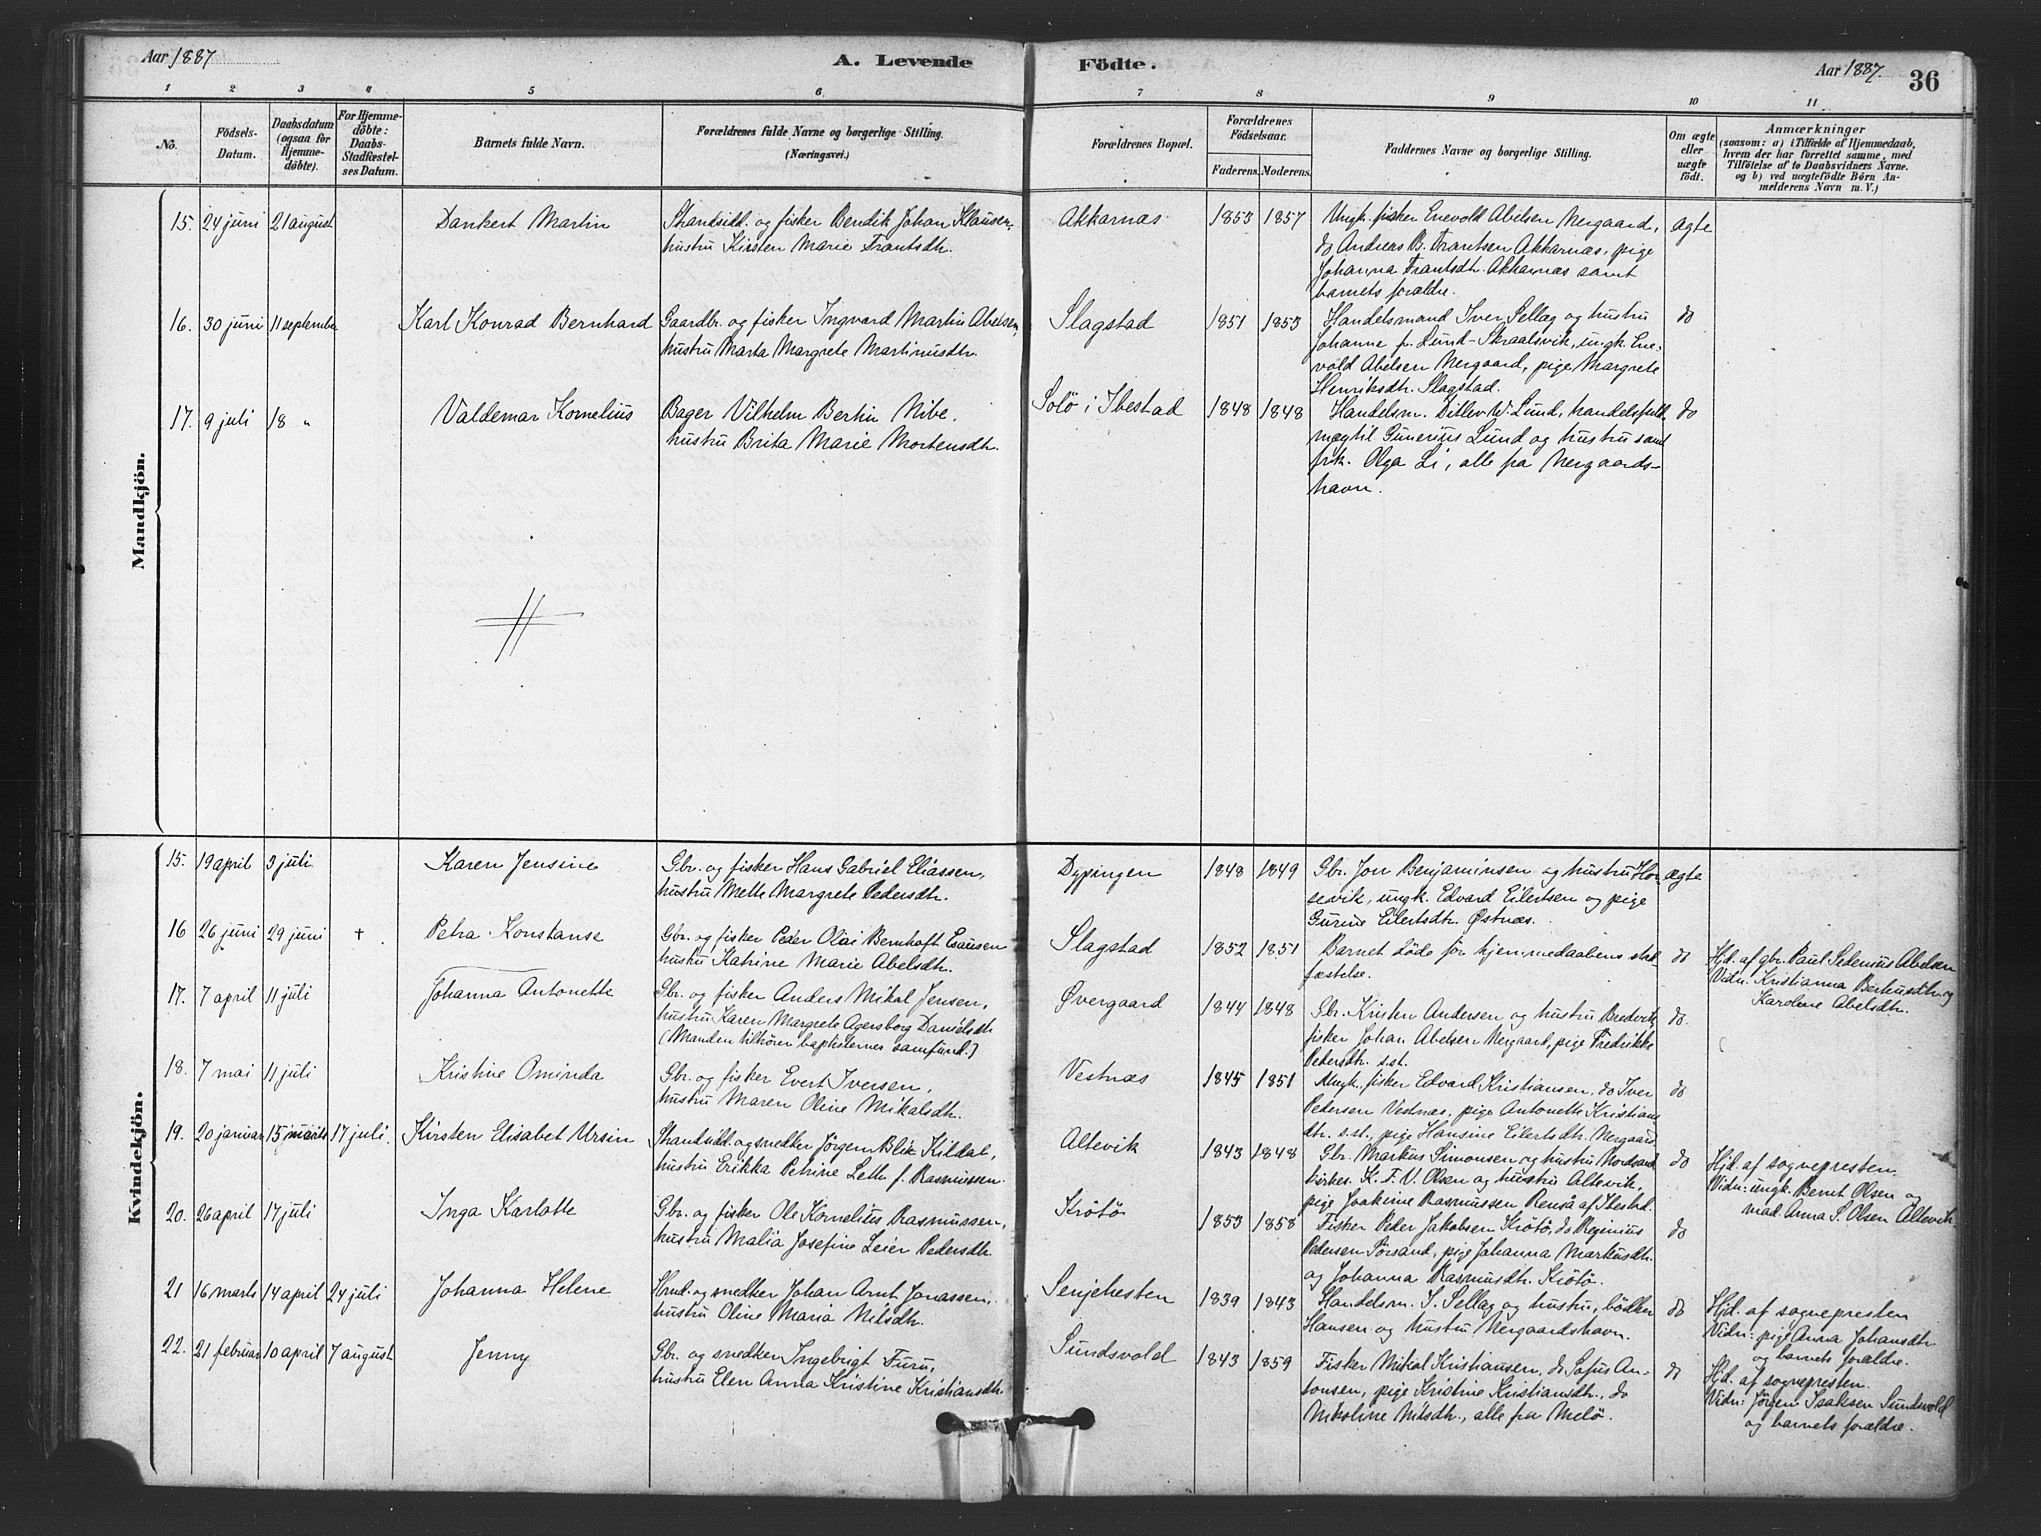 Aar 1887
A. Levende Födte.
Aar 1887.
36
1 2 3 4 5 6 7 8 9 10 11
No.
Födsels-Datum.
Daabsdatum (ogsaa for Hjemme-döbte).
For Hjemme-döbte: Daabs-Stadfæstel-ses Datum.
Barnets fulde Navn.
Forældrenes fulde Navne og borgerlige Stilling.
(Næringsvei.)
Forældrenes Bopæl.
Forældrenes Födselsaar.
Faderens. Moderens.
Faddernes Navne og borgerlige Stilling.
Om ægte eller uægte födt.
Anmærkninger
(saasom: a) i Tilfælde af Hjemmedaab,
hvem der har forrettet samme, med
Tilföielse af to Daabsvidners Navne.
og b) ved uægtefödte Börn An-
melderens Navn m. V.)
Mandkjön.
15. 24 juni 21 august Dankert Martin
Strandsidd. og fisker Bendik Johan Klausen,
hustru Kirsten Marie Frantsdtr.
Akkarnæs 1853 1857
Ungk. fisker Enevold Abelsen Nergaard,
do Andreas B. Frantsen Akkarnæs, pige
Johanna Frantsdtr. Akkarnæs samt
barnets forældre.
ægte
16. 30 juni 11 septembe Karl Konrad Bernhard
Gaardbr. og fisker Ingvard Martin Abelsen,
hustru Marta Margrete Martinusdtr.
Slagstad 1851 1853
Handelsmand Iver Sellæg og hustru
Johanne f. Lund - Skraalsvik, ungk. Ene-
vold Abelsen Nergaard, pige Margrete
Henriksdtr. Slagstad.
do
17. 9 juli 18 " Valdemar Kornelius
Bager Vilhelm Bertin Nibe,
hustru Brita Marie Mortensdtr.
Solö i Ibestad 1848 1848
Handelsm. Ditlev W. Lund, handelsfuld-
mægtil Gunerius Lund og hustru samt
frk. Olga Li, alle fra Nergaards-
havn.
do
Kvindekjön.
15. 19 april 3 juli Karen Jensine
Gbr. og fisker Hans Gabriel Eliassen,
hustru Mette Margrete Pedersdtr.
Dypingen 1848 1849
Gbr. Jon Benjaminsen og hustru Hor-
sevik, ungk. Edvard Eilertsen og pige
Gurine Eilertsdtr. Østnæs.
ægte
16 26 juni 29 juni + Petra Konstanse
Gbr. og fisker Peder Olai Bernhoft Esausen
hustru Katrine Marie Abelsdtr.
Slagstad 1852 1851
Barnet döde för hjemmedaabens stad-
fæstelse.
do
Hjd. af gbr. Paul Sedenius Abelsen
Vidn. Kristianna Berheusdtr og
Karoline Abelsdtr.
17. 7 april 11 juli Johanna Antonette
Gbr. og fisker Anders Mikal Jensen,
hustru Karen Margrete Agersborg Danielsdtr
(Manden tilhörer baptisternes samfund.)
Øvergaard 1844 1848
Gbr. Kristen Andersen og hustru Bredvik,
fisker Johan Abelsen Nergaard, pige Fredrikke
Pedersdtr. s.st.
do.
18. 7 mai 11 juli Kristine Ominda
Gbr. og fisker Evert Iversen,
hustru Maren Oline Mikalsdtr.
Vestnæs 1845 1851
Ungk. fisker Edvard Kristiansen, do Iver
Pedersen Vestnæs, pige Antonette Kristians-
dtr. s.st., pige Hansine Eilertsdtr. Nergaard.
do
19. 20 januar 15 marts 17 juli. Kirsten Elisabet Ursin
Strandsidd. og snedker Jörgen Blix Kildal,
hustru Erikka Petrine Leth f. Rasmussen.
Altevik 1843 1848
Gbr. Markus Simonsen og hustru Nordsand
kirkes. K. F. V. Olsen og hustru Altevik,
pige Joakine Rasmussen Renså af Ibestad.
do
Hjd. af sognepresten.
Vidn: ungk. Bernt Olsen og
mad. Anna S. Olsen Altevik.
20. 26 april 17 juli Inga Karlotte
Gbr. og fisker Ole Kornelius Rasmussen,
hustru Malia Josefine Leier Pedersdtr.
Krötö 1853 1858
Fisker Peder Jakobsen Krötö, do Reginius
Pedersen Sörsand, pige Johanna Markusdtr.
og Johanna Rasmusdtr. Krötö.
do
21 16 marts 14 april 24 juli Johanna Helene
Hmd. og snedker Johan Arnt Jonassen,
hustru Oline Maria Nilsdtr.
Senjehesten 1839 1843
Handelsm. I. Sellæg og hustru, bödker
Hansen og hustru Nergaardshavn.
do
Hjd. af sognepresten
Vidn: pige Anna Johansdtr
og barnets forældre.
22. 21 februar 10 april 7 august Jenny
Gbr. og snedker Ingebrigt Furu,
hustru Elen Anna Kristine Kristiansdtr.
Sundsvold 1843 1859
Fisker Mikal Kristiansen, do Sofus An-
tonsen, pige Kristine Kristiansdtr., do
Nikoline Nilsdtr., alle fra Melö.
do
Hjd. af sognepresten.
Vidn: Jörgen Isaksen Sundsvold
og barnets forældre.